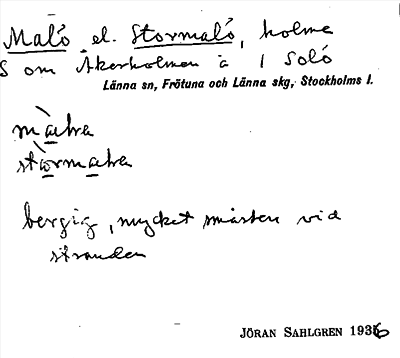 Malö el. Stormalö, holme
S om Åkerholmen å 1 Solö
Länna sn, Frötuna och Länna skg, Stockholms l.
màtra
stòrmatra
bergig, mycket småsten vid
stranden
JÖRAN SAHLGREN 1936